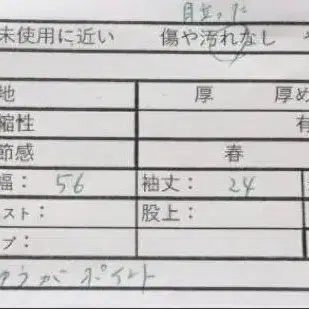 目立った
未使用に近い 傷や汚れなし
地 厚 厚め
縮性 有
節感 春
幅： 56 袖丈： 24
スト： 股上：
プ：
ゆうが ポイント